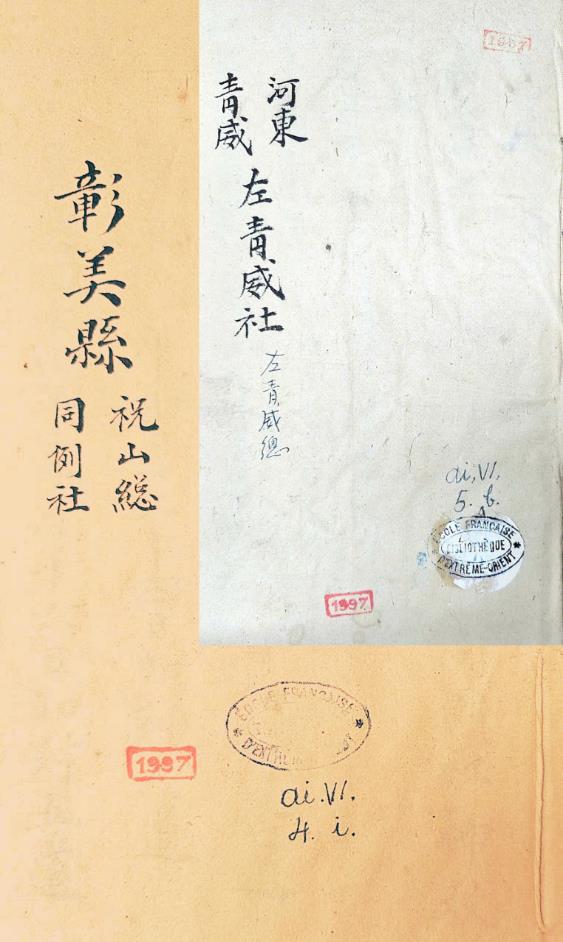 河東
青威
左青威社
左青威總
ai.VI.
5. b.
ECOLE FRANÇAISE
BIBLIOTHÈQUE
D'EXTRÊME-ORIENT
1997
彰美縣
祝山総
同例社
ECOLE FRANÇAISE
1997
ai.VI.
4. i.